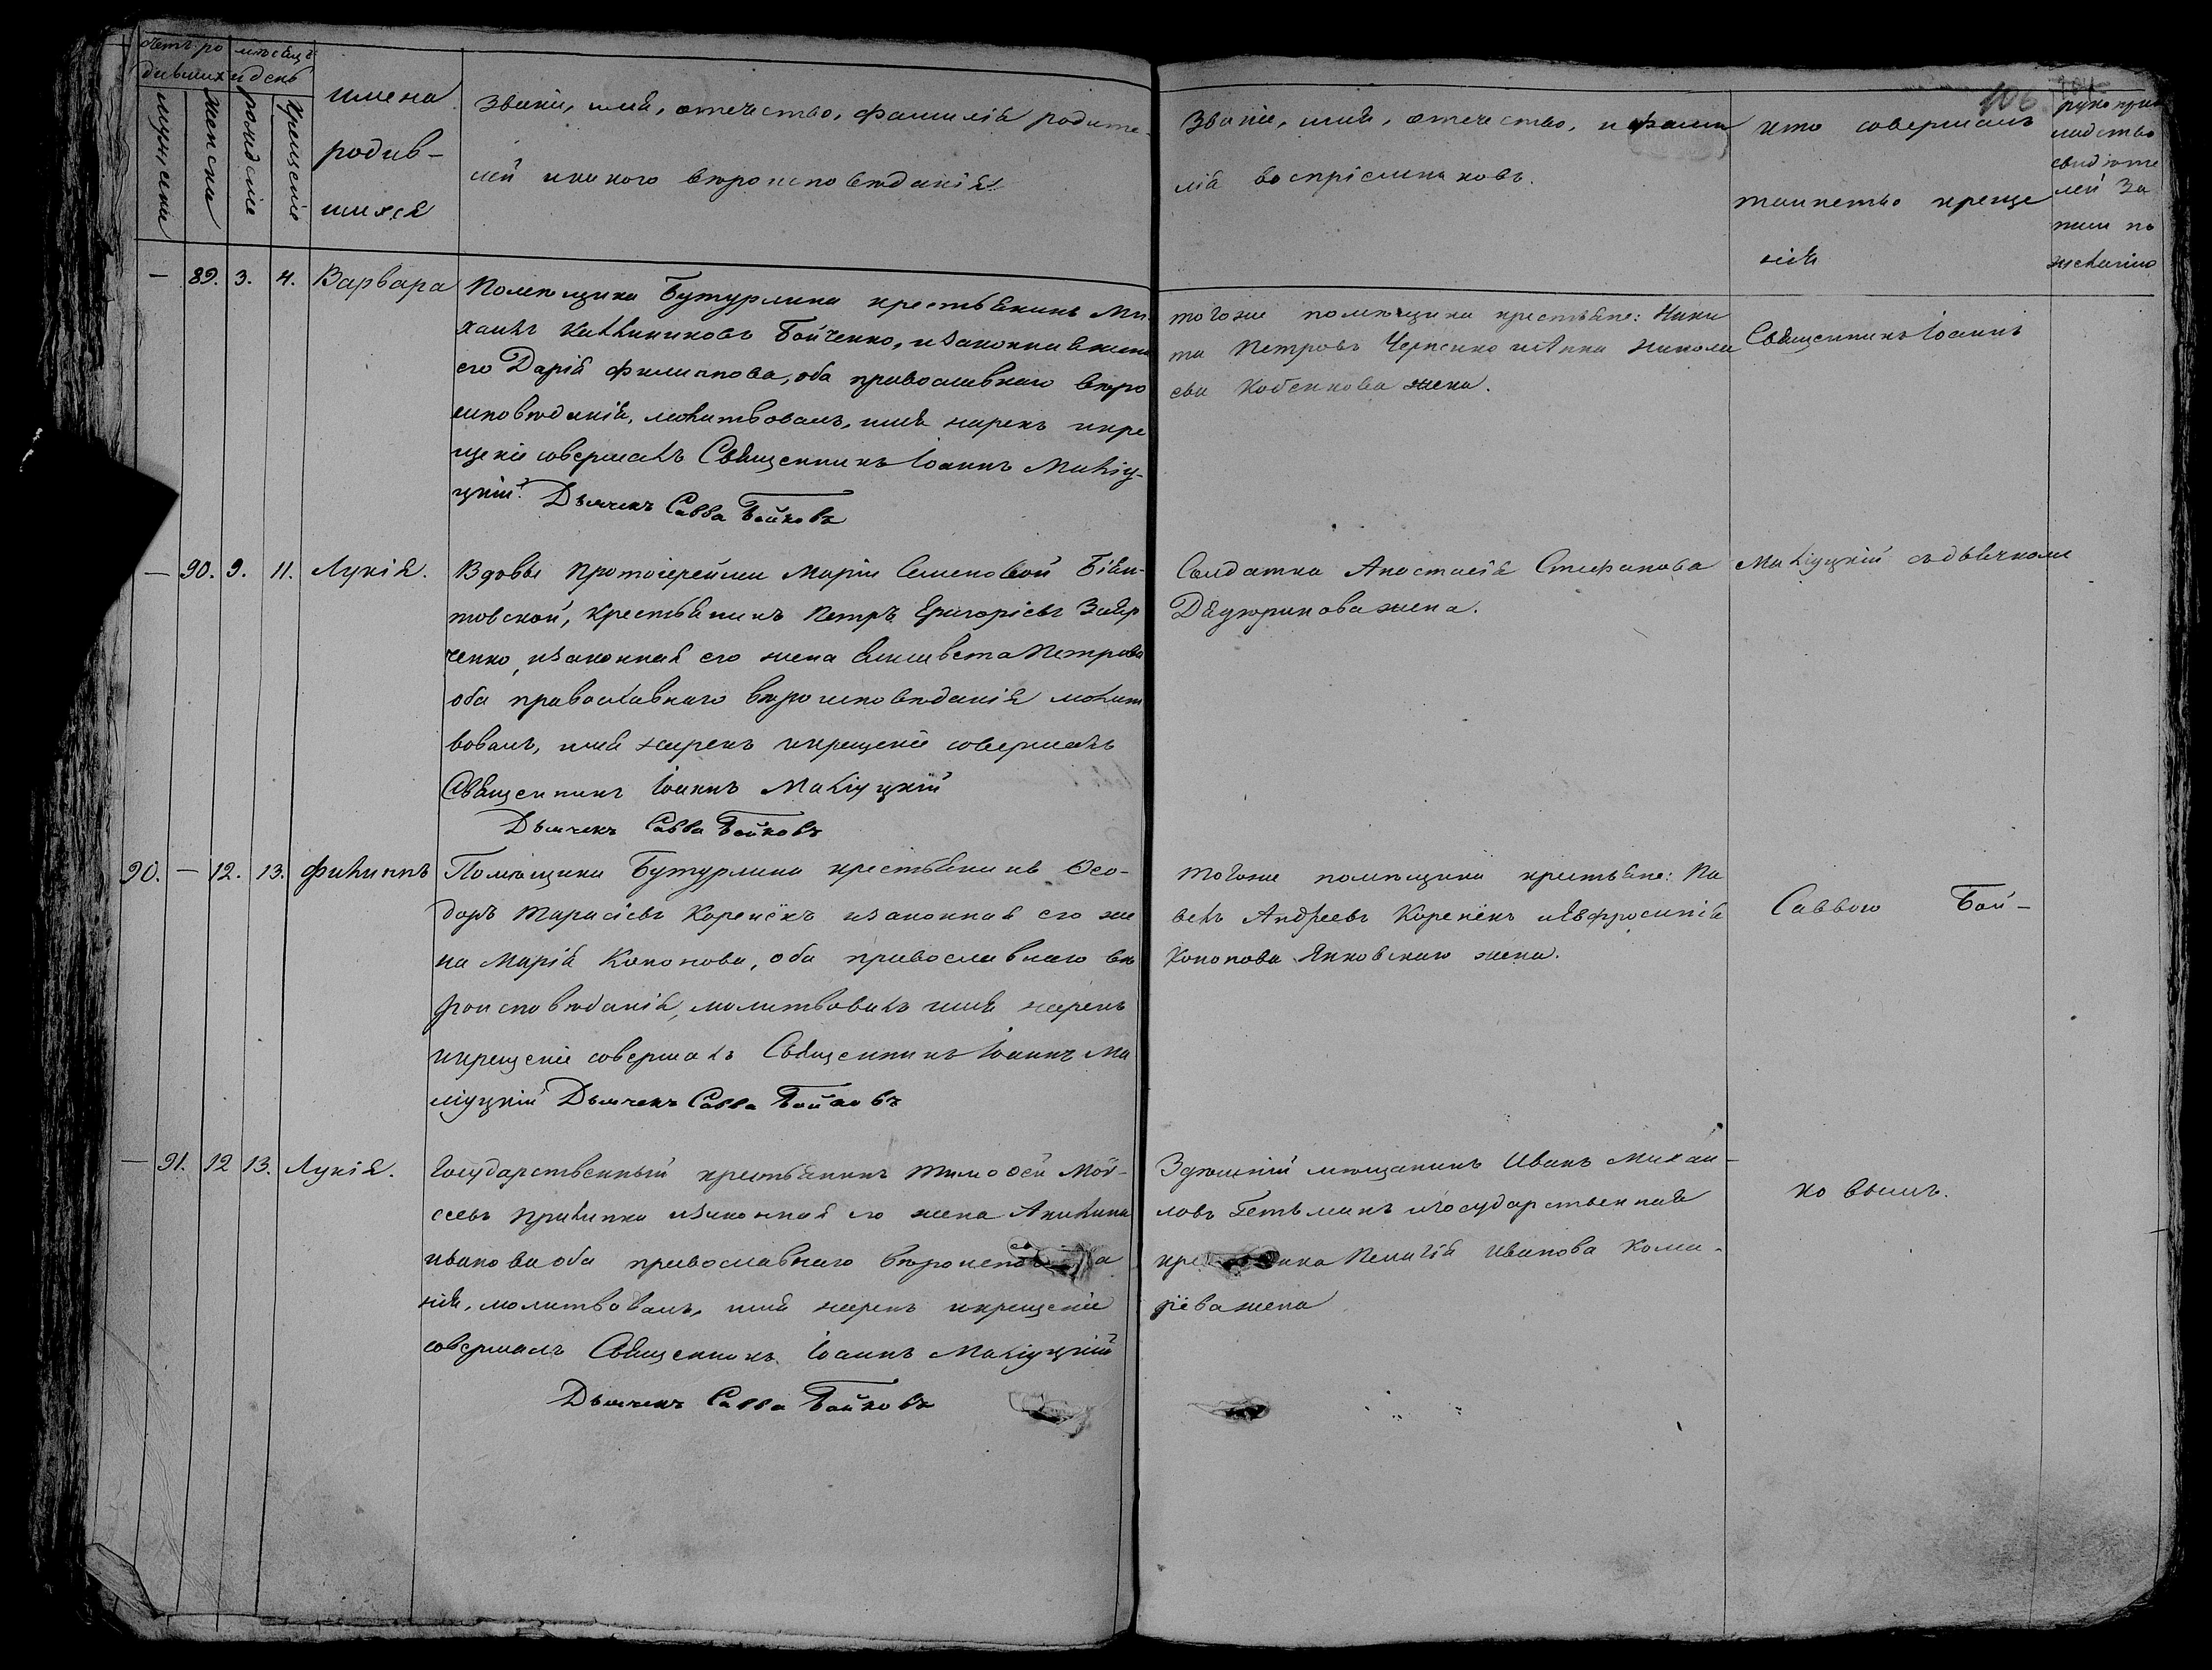 счетъ ро
дившихъ
мѣсяцъ
и день
мужескъ
женска
рожденіе
крещеніе
имена
родив-
шихся
Званіе, имя, отечество, фамилія родите-
лей и какого вѣроисповѣданія
Званіе, имя, отечество, и фами
лія воспріемниковъ.
106
Кто совершалъ
таинство креще
нія
рукопри
кладство
свидѣте
лей за
писи по
желанію
— 89. 3. 4. Варвара
Помѣщика Бутурлина крестьянинъ Ми-
хаилъ Каллиниковъ Бойченко, и законная жена
его Дарія Филиппова, оба православнаго вѣро
исповѣданія, молитвовалъ, имя нарекъ и кре
щеніе совершалъ Священникъ Іоаннъ Маліу-
цкій. Дьячекъ Савва Бойковъ
тогоже помѣщика крестьяне: Ники
та Петровъ и Анна Никола
ева жена.
Священникъ Іоаннъ
— 90. 9. 11. Лукія.
Вдовы Протоіерейши Маріи Семеновой
крестьянинъ Петръ Григорьевъ
ченко, и законная его жена Елисавета Петрова
оба православнаго вѣроисповѣданія молит
вовалъ, имя нарекъ и крещеніе совершалъ
Священникъ Іоаннъ Маліуцкій
Дьячекъ Савва Бойковъ
Солдатка Анастасія Стефанова
жена.
Маліуцкій съ дьячкомъ
90. — 12. 13. Филиппъ
Помѣщика Бутурлина крестьянинъ Ѳео-
доръ Тарасіевъ Коренёкъ и законная его же
на Марія Кононова, оба православнаго вѣ
роисповѣданія, молитвовалъ имя нарекъ
и крещеніе совершалъ Священникъ Іоаннъ Ма
ліуцкій Дьячекъ Савва Бойковъ
тогоже помѣщика крестьяне: Па
велъ Андреевъ Коренёкъ и Евфросинія
Кононова Янковскаго жена.
Саввою Бой-
— 91. 12 13. Лукія.
Государственный крестьянинъ Тимоѳей Мой-
сеевъ и законная его жена Акилина
Иванова оба православнаго
нія, молитвовалъ, имя нарекъ и крещеніе
совершалъ Священникъ Іоаннъ Маліуцкій
Дьячекъ Савва Бойковъ
Здѣшній мѣщанинъ Иванъ Михаи-
ловъ Гетьманъ и государственная
Пелагія Иванова Кома-
рёва жена
ковымъ.